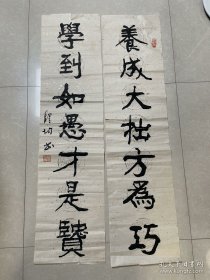 養成大拙方為巧
學到如愚才是賢